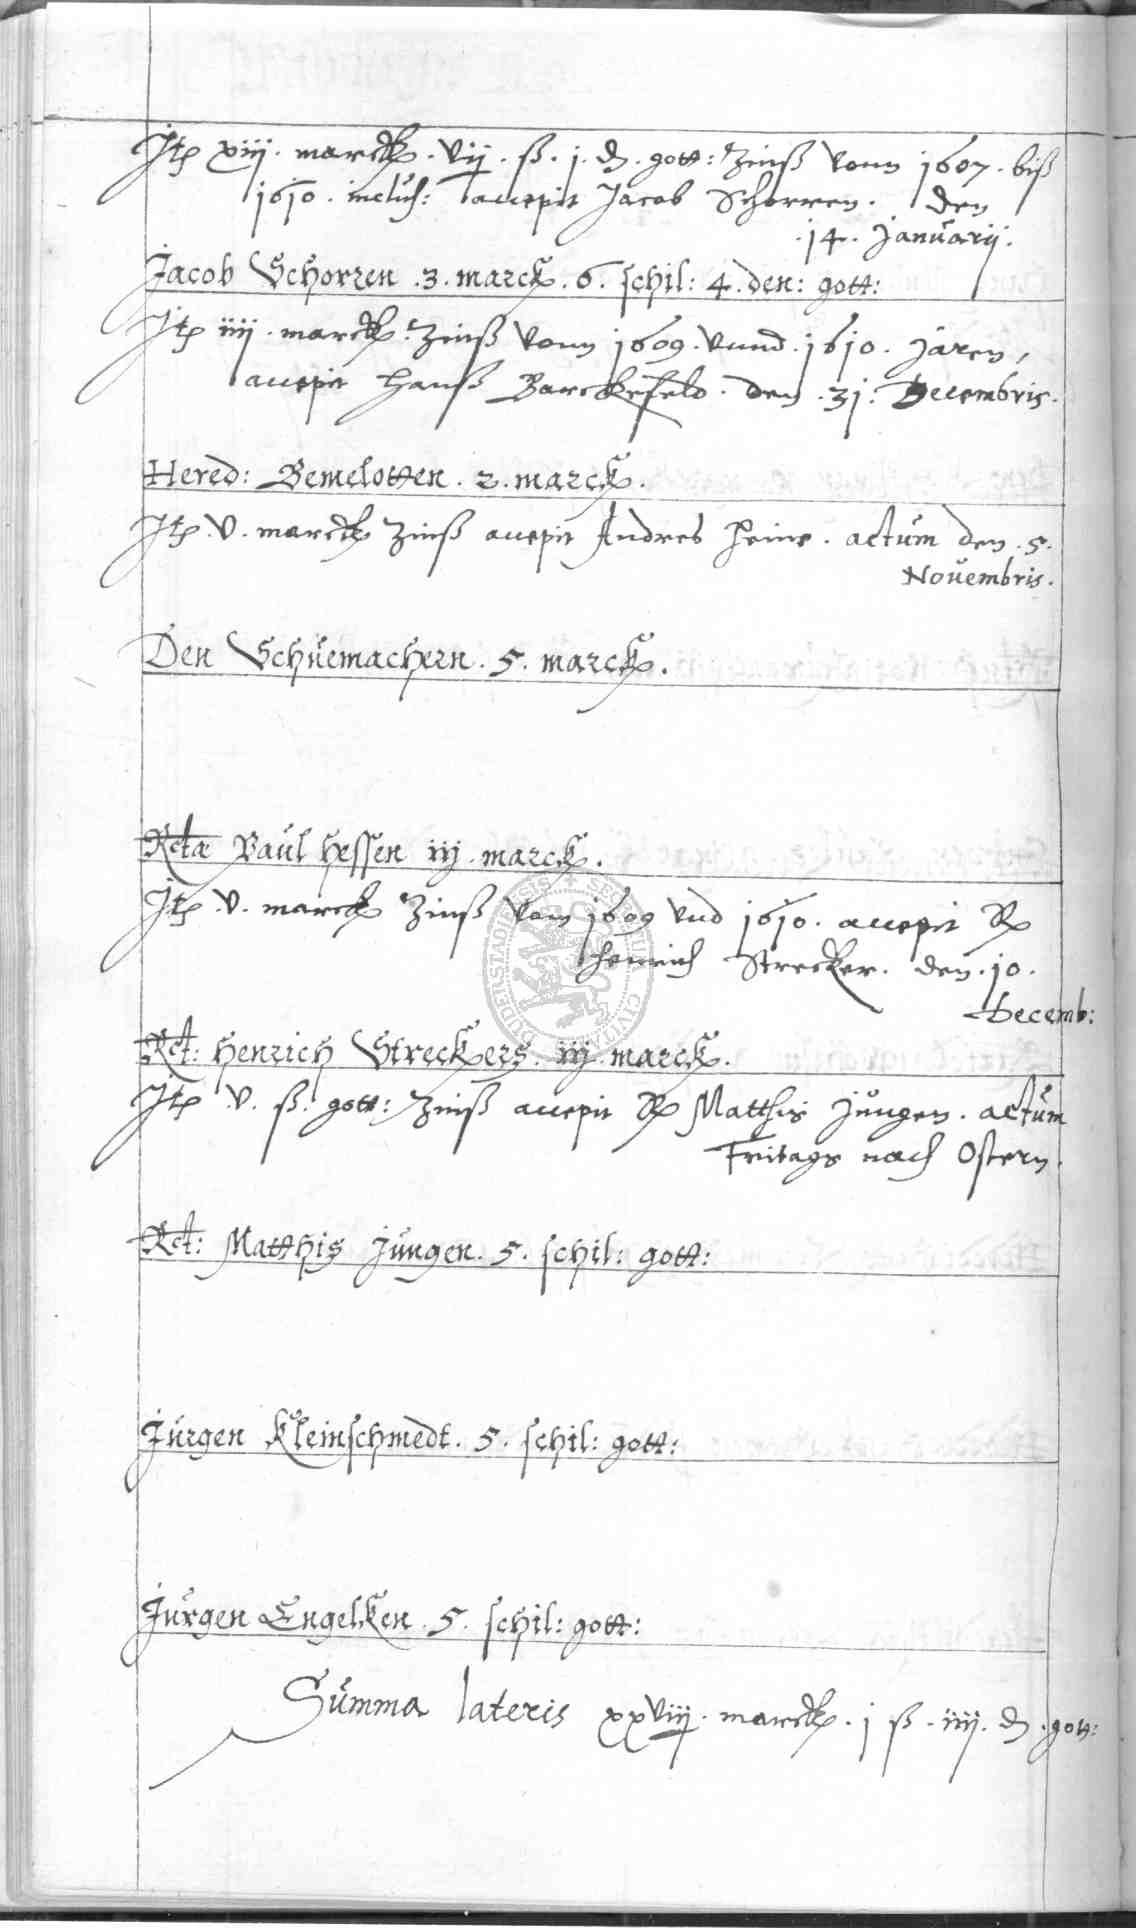 Itp xiij. marck. vij. ß. j. d. gott: Zinß vonn 1607. biß
1610. inclus: accepit Jacob Schorren. den
.14. Januarij.
Jacob Schorren .3. marck. 6. schil: 4. den: gott:
Itp iiij. marck. Zinß vonn 1609. vnnd .1610. Jaren,
accepit Hanß Barckefeld. den .31. Decembris.
Hered: Bemelotten. 2. marck.
Itp .v. marck Zinß accepit Andres Heine. actum den .5.
Novembris.
Den Schuemachern. 5. marck.
Rcta Paul Hessen iij. marck.
Itp .v. marck Zinß vom 1609 vnd 1610. accepit R
Henrich Strecker. den .10.
Decemb:
Rct: Henrich Streckers. iij. marck.
Itp .v. ß. gott: Zinß accepit R Matthis Jungen. actum
Fritags nach Ostern.
Rct: Matthis Jungen. 5. schil: gott:
Jurgen Kleinschmedt. 5. schil: gott:
Jurgen Engelken. 5. schil: gott:
Summa lateris xxviij. marck. j ß. iiij. d. gott:
SECRETUM CIVITATIS DUDERSTADIENSIS